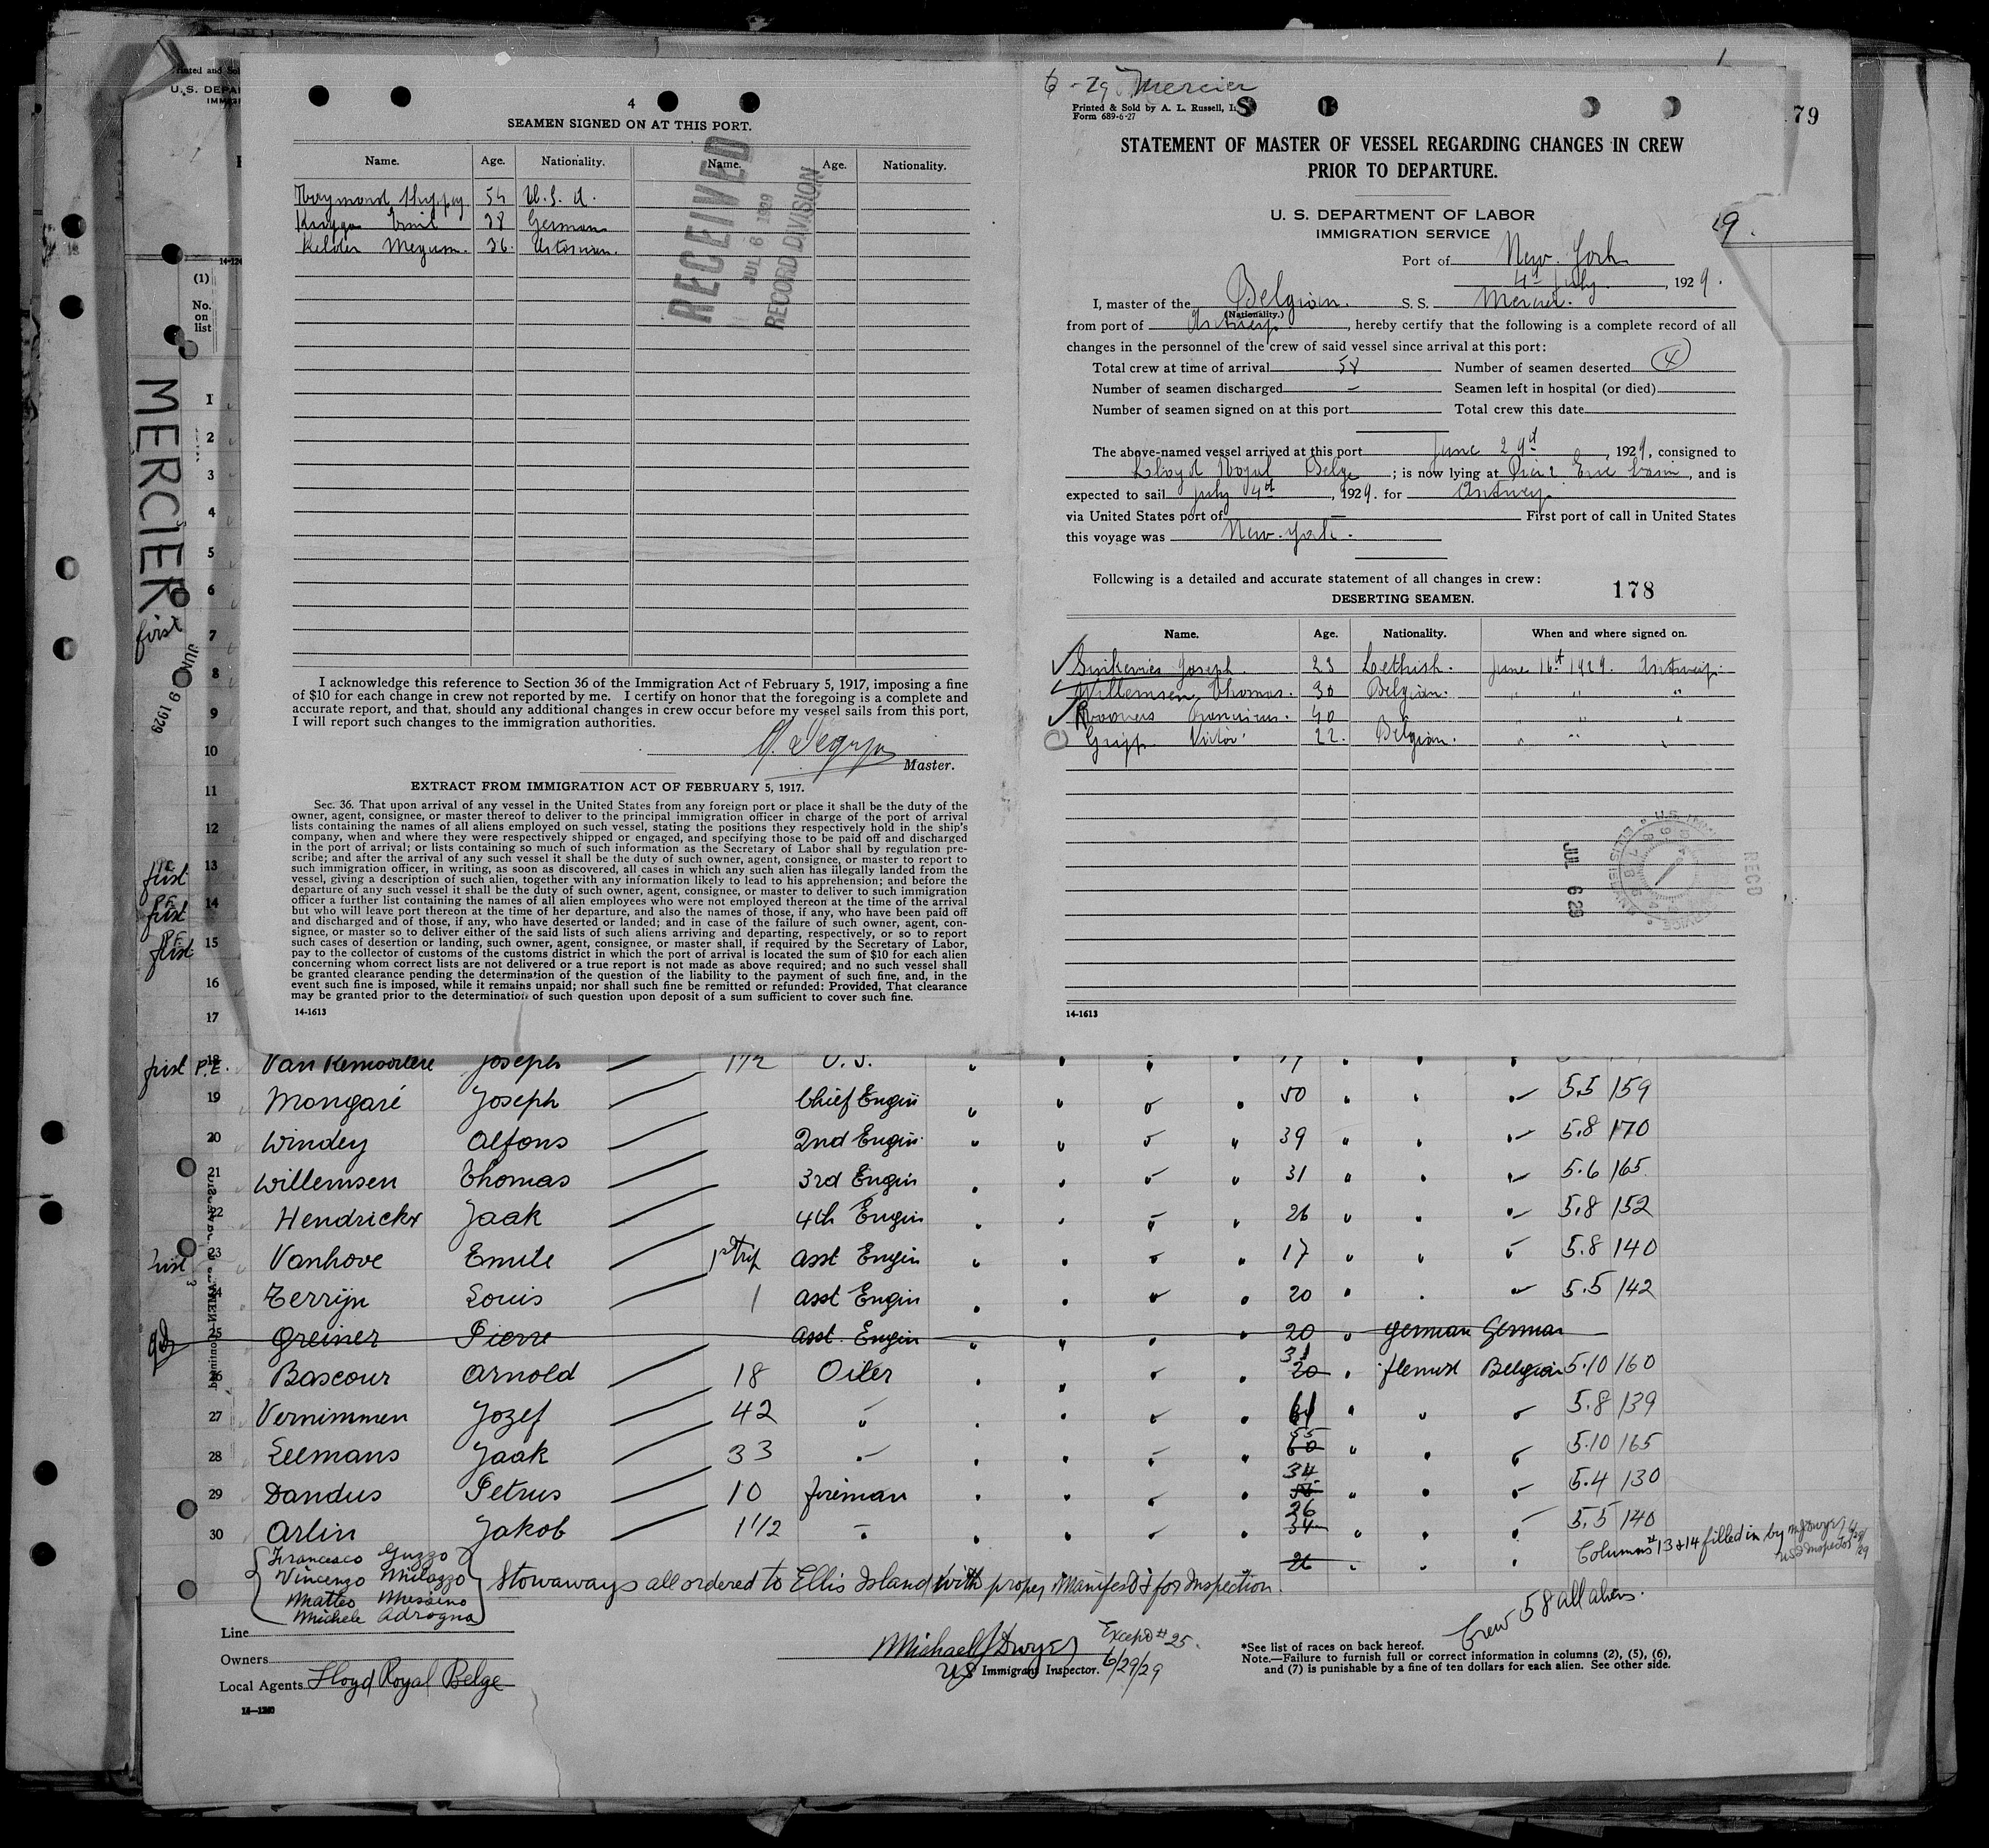 Printed and Sol
U. S. DEPA
IMMIG
4
SEAMEN SIGNED ON AT THIS PORT.
Name. Age. Nationality. Name. Age. Nationality.
Raymond 54 U. S. A.
Emil 28 German
26.
RECEIVED
JUL 6 1929
RECORD DIVISION
I acknowledge this reference to Section 36 of the Immigration Act of February 5, 1917, imposing a fine
of $10 for each change in crew not reported by me. I certify on honor that the foregoing is a complete and
accurate report, and that, should any additional changes in crew occur before my vessel sails from this port,
I will report such changes to the immigration authorities.
Master.
EXTRACT FROM IMMIGRATION ACT OF FEBRUARY 5, 1917.
Sec. 36. That upon arrival of any vessel in the United States from any foreign port or place it shall be the duty of the
owner, agent, consignee, or master thereof to deliver to the principal immigration officer in charge of the port of arrival
lists containing the names of all aliens employed on such vessel, stating the positions they respectively hold in the ship's
company, when and where they were respectively shipped or engaged, and specifying those to be paid off and discharged
in the port of arrival; or lists containing so much of such information as the Secretary of Labor shall by regulation pre-
scribe; and after the arrival of any such vessel it shall be the duty of such owner, agent, consignee, or master to report to
such immigration officer, in writing, as soon as discovered, all cases in which any such alien has illegally landed from the
vessel, giving a description of such alien, together with any information likely to lead to his apprehension; and before the
departure of any such vessel it shall be the duty of such owner, agent, consignee, or master to deliver to such immigration
officer a further list containing the names of all alien employees who were not employed thereon at the time of the arrival
but who will leave port thereon at the time of her departure, and also the names of those, if any, who have been paid off
and discharged and of those, if any, who have deserted or landed; and in case of the failure of such owner, agent, con-
signee, or master so to deliver either of the said lists of such aliens arriving and departing, respectively, or so to report
such cases of desertion or landing, such owner, agent, consignee, or master shall, if required by the Secretary of Labor,
pay to the collector of customs of the customs district in which the port of arrival is located the sum of $10 for each alien
concerning whom correct lists are not delivered or a true report is not made as above required; and no such vessel shall
be granted clearance pending the determination of the question of the liability to the payment of such fine, and, in the
event such fine is imposed, while it remains unpaid; nor shall such fine be remitted or refunded: Provided, That clearance
may be granted prior to the determination of such question upon deposit of a sum sufficient to cover such fine.
14-1613
6-29 Mercier
Printed & Sold by A. L. Russell, I
Form 689-6-27
79
STATEMENT OF MASTER OF VESSEL REGARDING CHANGES IN CREW
PRIOR TO DEPARTURE.
U. S. DEPARTMENT OF LABOR
IMMIGRATION SERVICE
Port of New York
4th July, 1929.
I, master of the Belgian. S. S. Mercier.
(Nationality.)
from port of Antwerp, hereby certify that the following is a complete record of all
changes in the personnel of the crew of said vessel since arrival at this port:
Total crew at time of arrival 58 Number of seamen deserted 4
Number of seamen discharged — Seamen left in hospital (or died)
Number of seamen signed on at this port Total crew this date
The above-named vessel arrived at this port June 29th, 1929, consigned to
Lloyd Royal Belge; is now lying at Pier 2 Erie basin, and is
expected to sail July 4th, 1929. for Antwerp.
via United States port of — First port of call in United States
this voyage was New-York.
Following is a detailed and accurate statement of all changes in crew:
178
DESERTING SEAMEN.
Name. Age. Nationality. When and where signed on.
Joseph. 23 Lethish. June 16th 1929. Antwerp.
Willemsen Thomas. 30 Belgian. " " "
40 " "
Victor 22. Belgian. " " "
JUL 6 29
RECD
14-1613
(1)
No.
on
list
MERCIER
first
JUN 9 1929
1
2
3
4
5
6
7
8
9
10
11
12
13 first
14 first
15 first
16
17
first P.E. 18 Joseph 1 1/2 O. S.
19 Mongaré Joseph Chief Engin 50 5.5 159
20 Windey Alfons 2nd Engin 39 5.8 170
21 Willemsen Thomas 3rd Engin 31 5.6 165
22 Hendrickx Jaak 4th Engin 26 5.8 152
23 Vanhove Emile 1st Trip asst Engin 17 5.8 140
24 Terrijn Louis 1 asst Engin 20 5.5 142
25 Greiner Pierre asst. Engin 20 German German
26 Bascour Arnold 18 Oiler 31 20 flemish Belgian 5.10 160
27 Vernimmen Jozef 42 " 61 5.8 139
28 Eelmans Jaak 33 " 55 60 5.10 165
29 Dandus Petrus 10 fireman 34 5.4 130
30 Arlin Jakob 1 1/2 " 26 34 5.5 140
26
Columns 13 & 14 filled in by M J Dwyer
US Inspector
6/29/29
Francesco Guzzo
Vincenzo Milazzo
Matteo Messina
Michele Adragna
Stowaways all ordered to Ellis Island with proper Manifest for Inspection.
Crew 58 all aliens.
Line
Owners
Local Agents Lloyd Royal Belge
14—1240
Michael J Dwyer Except #25.
US Immigrant Inspector. 6/29/29
*See list of races on back hereof.
Note.—Failure to furnish full or correct information in columns (2), (5), (6),
and (7) is punishable by a fine of ten dollars for each alien. See other side.